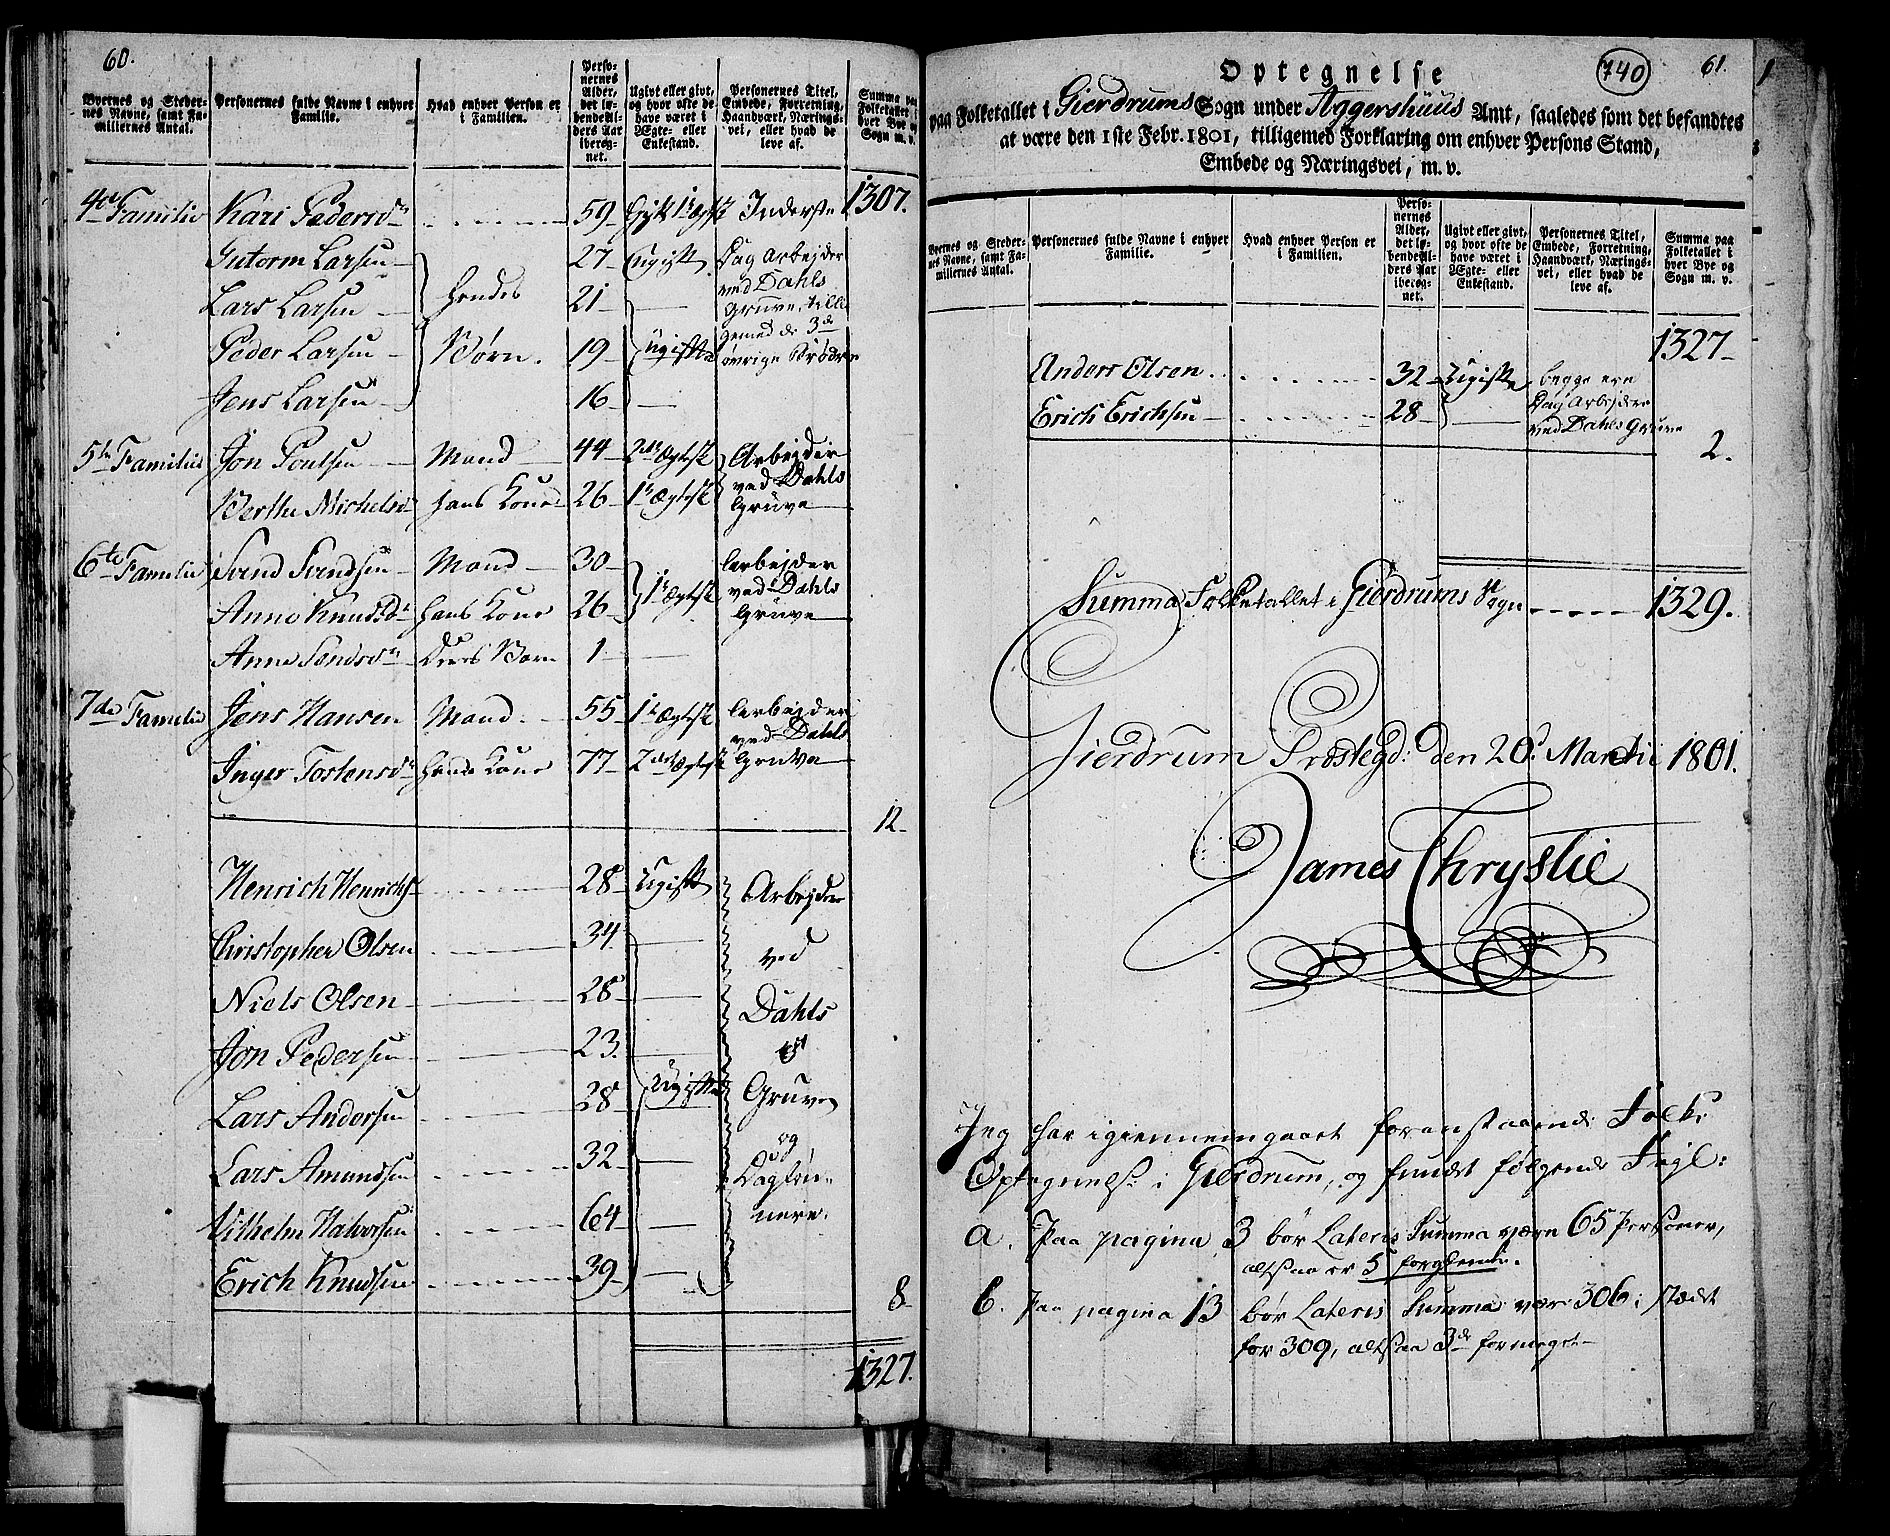 60.
Byernes og Stedernes Navne, samt Familiernes Antal.
Personernes fulde Navne i enhver Familie.
Hvad enhver Person er i Familien.
Personernes Alder, det løbende Alders Aar iberegnet.
Ugivt eller givt, og hvor ofte de have været i Ægte- eller Enkestand.
Personernes Titel, Embede, Forretning, Haandværk, Næringsvei, eller hvad de leve af.
Summa paa Folketallet i hver Bye og Sogn m. v.
1307.
4de Familie Kari Pedersdr 59 Inderste
Gutorm Larsen 27 Ugift Dag Arbejder
Lars Larsen hendes 21 ved Dahls Gruve, tilli
Peder Larsen Børn. 19 Ugifte gemed de 3de øvrige Brødre
Jens Larsen 16
5te Familie Jon Poulsen Mand 44 2det Ægtesk Arbejder
Berthe Michelsd hans Kone 26 1te Ægtesk ved Dahls Gruve
6te Familie Svend Svendsen Mand 30 Arbejder
Anne Knudsdr hans Kone 26 1te Ægtesk ved Dahls Gruve
Anne Svendsdr Deres Barn 1
7de Familie Jens Hansen Mand 55 1te Ægtesk Arbejder
Inger Tostensdr hans Kone 77 2det Ægtesk ved Dahls Gruve
12
Henrich Henrichs 28 Ugift Arbejder
Christopher Olsen 34 ved
Niels Olsen 28 Dahls
Jon Pedersen 23
Lars Andersen 28 Ugifte Gruve
Lars Amundsen 32 og Dagløn-
Vilhelm Halvorsen 64 nere.
Erich Knudsen 39
8
1327.
740
61.
Optegnelse
paa Folketallet i Gierdrums Sogn under Aggershuus Amt, saaledes som det befandtes
at være den 1ste Febr. 1801, tilligemed Forklaring om enhver Persons Stand,
Embede og Næringsvei, m. v.
Byernes og Stedernes Navne, samt Familiernes Antal.
Personernes fulde Navne i enhver Familie.
Hvad enhver Person er i Familien.
Personernes Alder, det løbende Alders Aar iberegnet.
Ugivt eller givt, og hvor ofte de have været i Ægte- eller Enkestand.
Personernes Titel, Embede, Forretning, Haandværk, Næringsvei, eller hvad de leve af.
Summa paa Folketallet i hver Bye og Sogn m. v.
1327
Anders Olsen 32 Ugifte begge ere
Erich Erichsen 28 Dag Arbejdere
ved Dahls Gruve
2.
Summa Folketallet i Gierdrums Sogn 1329.
Gierdrum Præstegd: den 20d Martii 1801.
James Chrystie
Jeg har igiennemgaaet foranstaaende Folke
Optegnelse i Gierdrum, og fundet følgende Fejl:
a. Paa pagina 3 bør Lateris Summa være 65 Personer,
altsaa er 5 forglemte.
b. Paa pagina 13 bør Lateris Summa være 306 i stedet
for 309, altsaa 3de formeget